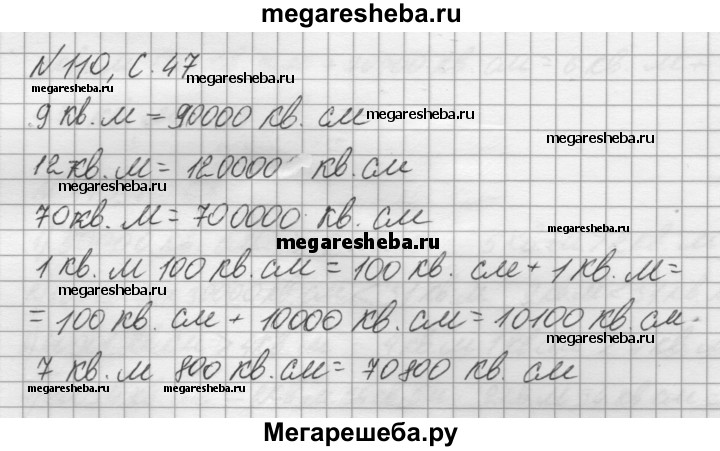 megaresheba.ru
N 110, с. 47
megaresheba.ru
megaresheba.ru
9 кв. м = 90000 кв. см
megaresheba.ru
megaresheba.ru
12 кв. м = 120000 кв. см
megaresheba.ru
megaresheba.ru
70 кв. м = 700000 кв. см
megaresheba.ru
1 кв. м 100 кв. см = 100 кв. см + 1 кв. м =
megaresheba.ru
megaresheba.ru
= 100 кв. см + 10000 кв. см = 10100 кв. см.
7 кв. м 800 кв. см = 70800 кв. см
megaresheba.ru
megaresheba.ru
megaresheba.ru
Мегарешеба.ру